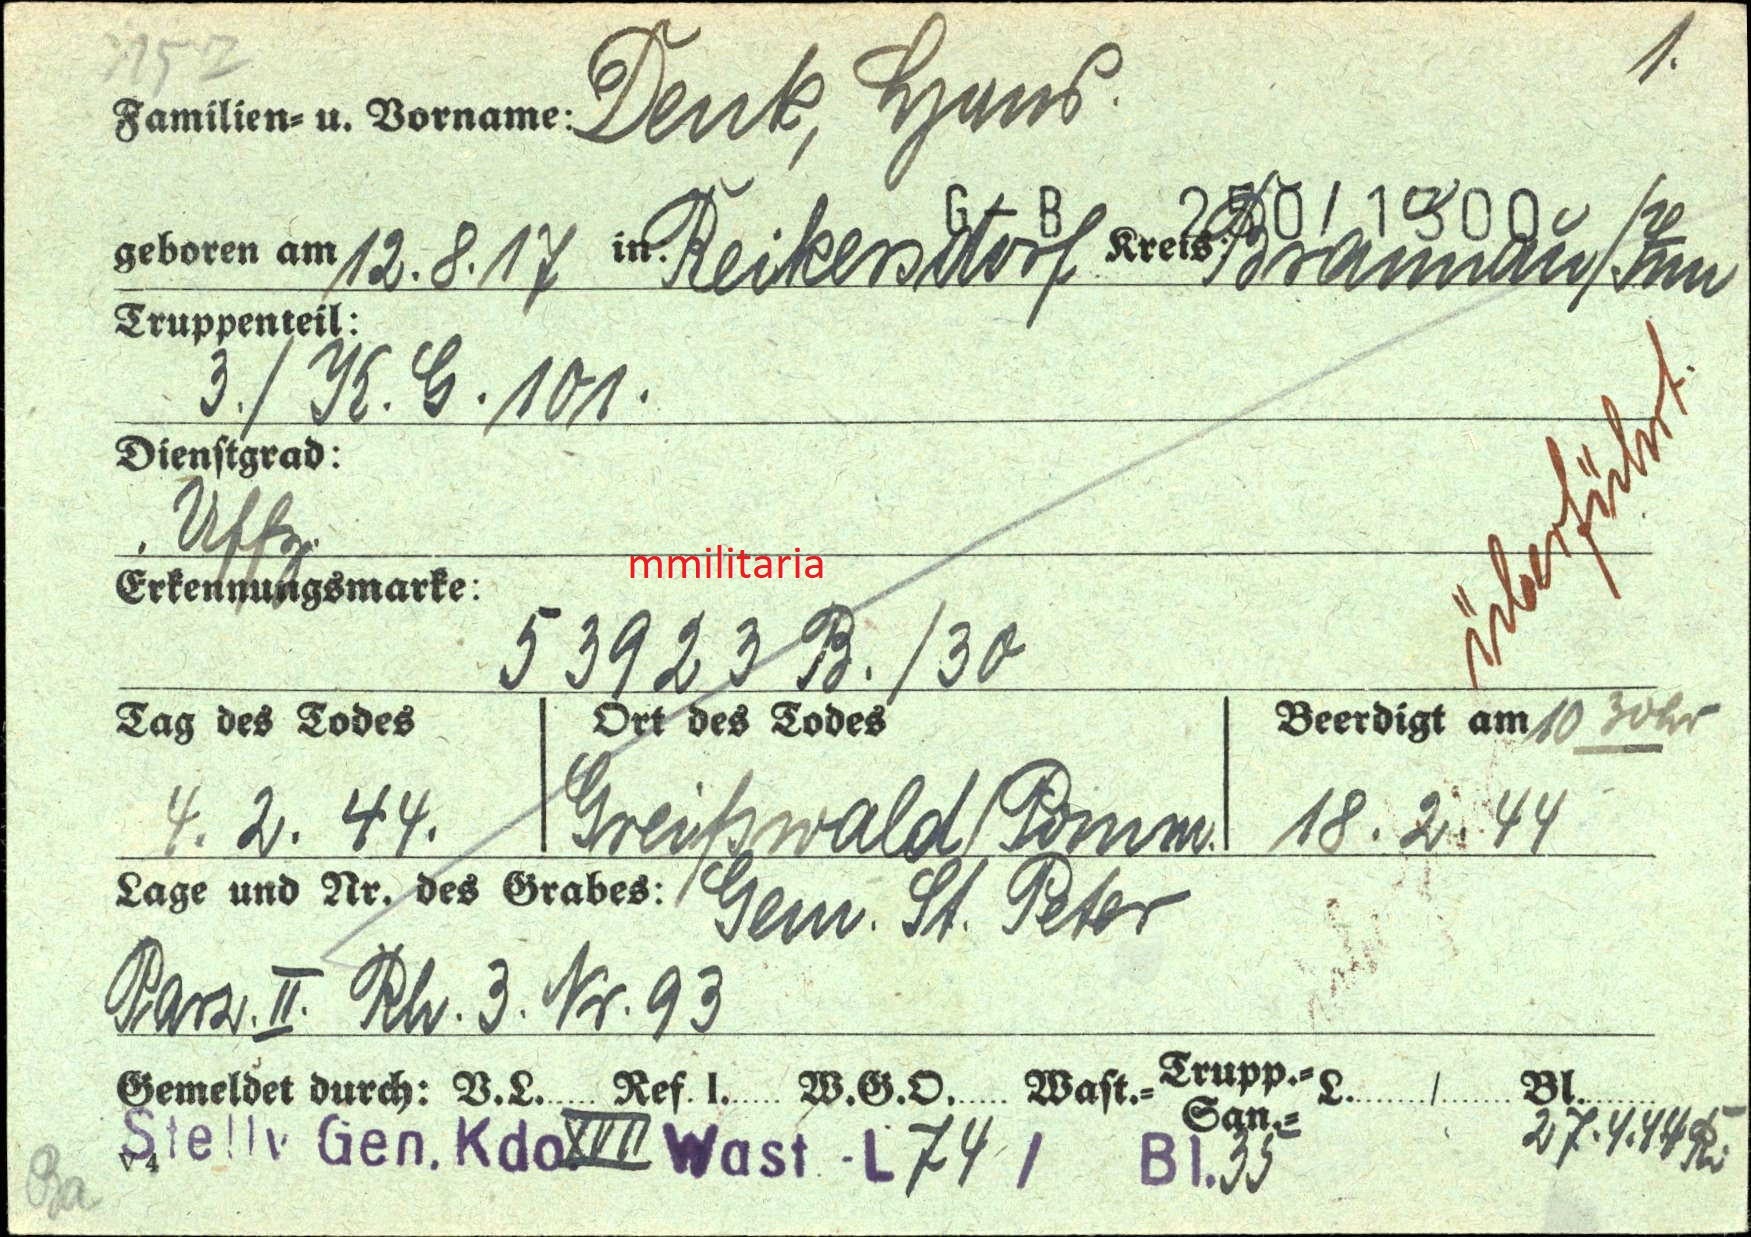 1.
Familien- u. Vorname: Denk, Hans.
G-B 250/1300
geboren am 12.8.17 in: Reikersdorf Kreis: Braunau/Inn
Truppenteil:
3./K.G.101.
Dienstgrad:
Uffz.
mmilitaria
Erkennungsmarke:
53923 B./30
überführt.
Tag des Todes Ort des Todes Beerdigt am 10 30 Uhr
4.2.44. Greifswald/Pomm. 18.2.44
Lage und Nr. des Grabes: Gem. St. Peter
Parz. II. Rh. 3. Nr. 93
Gemeldet durch: V.L..... Ref. I..... W.G.O..... Wast.- Trupp.- San.- L......../....... Bl.......
Stellv Gen. Kdo XVII Wast - L 74 / Bl. 35
27.4.44
V 4